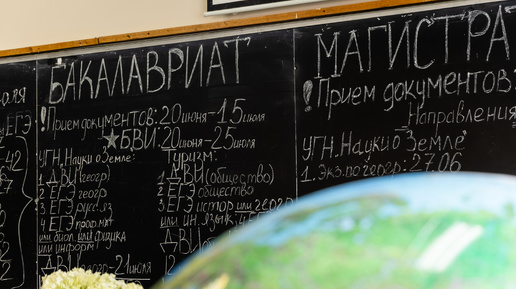 БАКАЛАВРИАТ
! Прием документов: 20 июня - 15 июля
★ БВИ: 20 июня - 25 июля
УГН. Науки о Земле:
1 ДВИ геогр
2 ЕГЭ геогр
3 ЕГЭ русск.яз
4 ЕГЭ проф.мат
или биол. или физика
или информ
ДВИ
21 июля
Туризм:
1 ДВИ (общество)
2 ЕГЭ общество
3 ЕГЭ истор или геогр
или ин. язык
ДВИ
МАГИСТРАТ
! Прием документов:
Направления
УГН. Науки о Земле
1. Экз. по геогр: 27.06
ЕГЭ
42